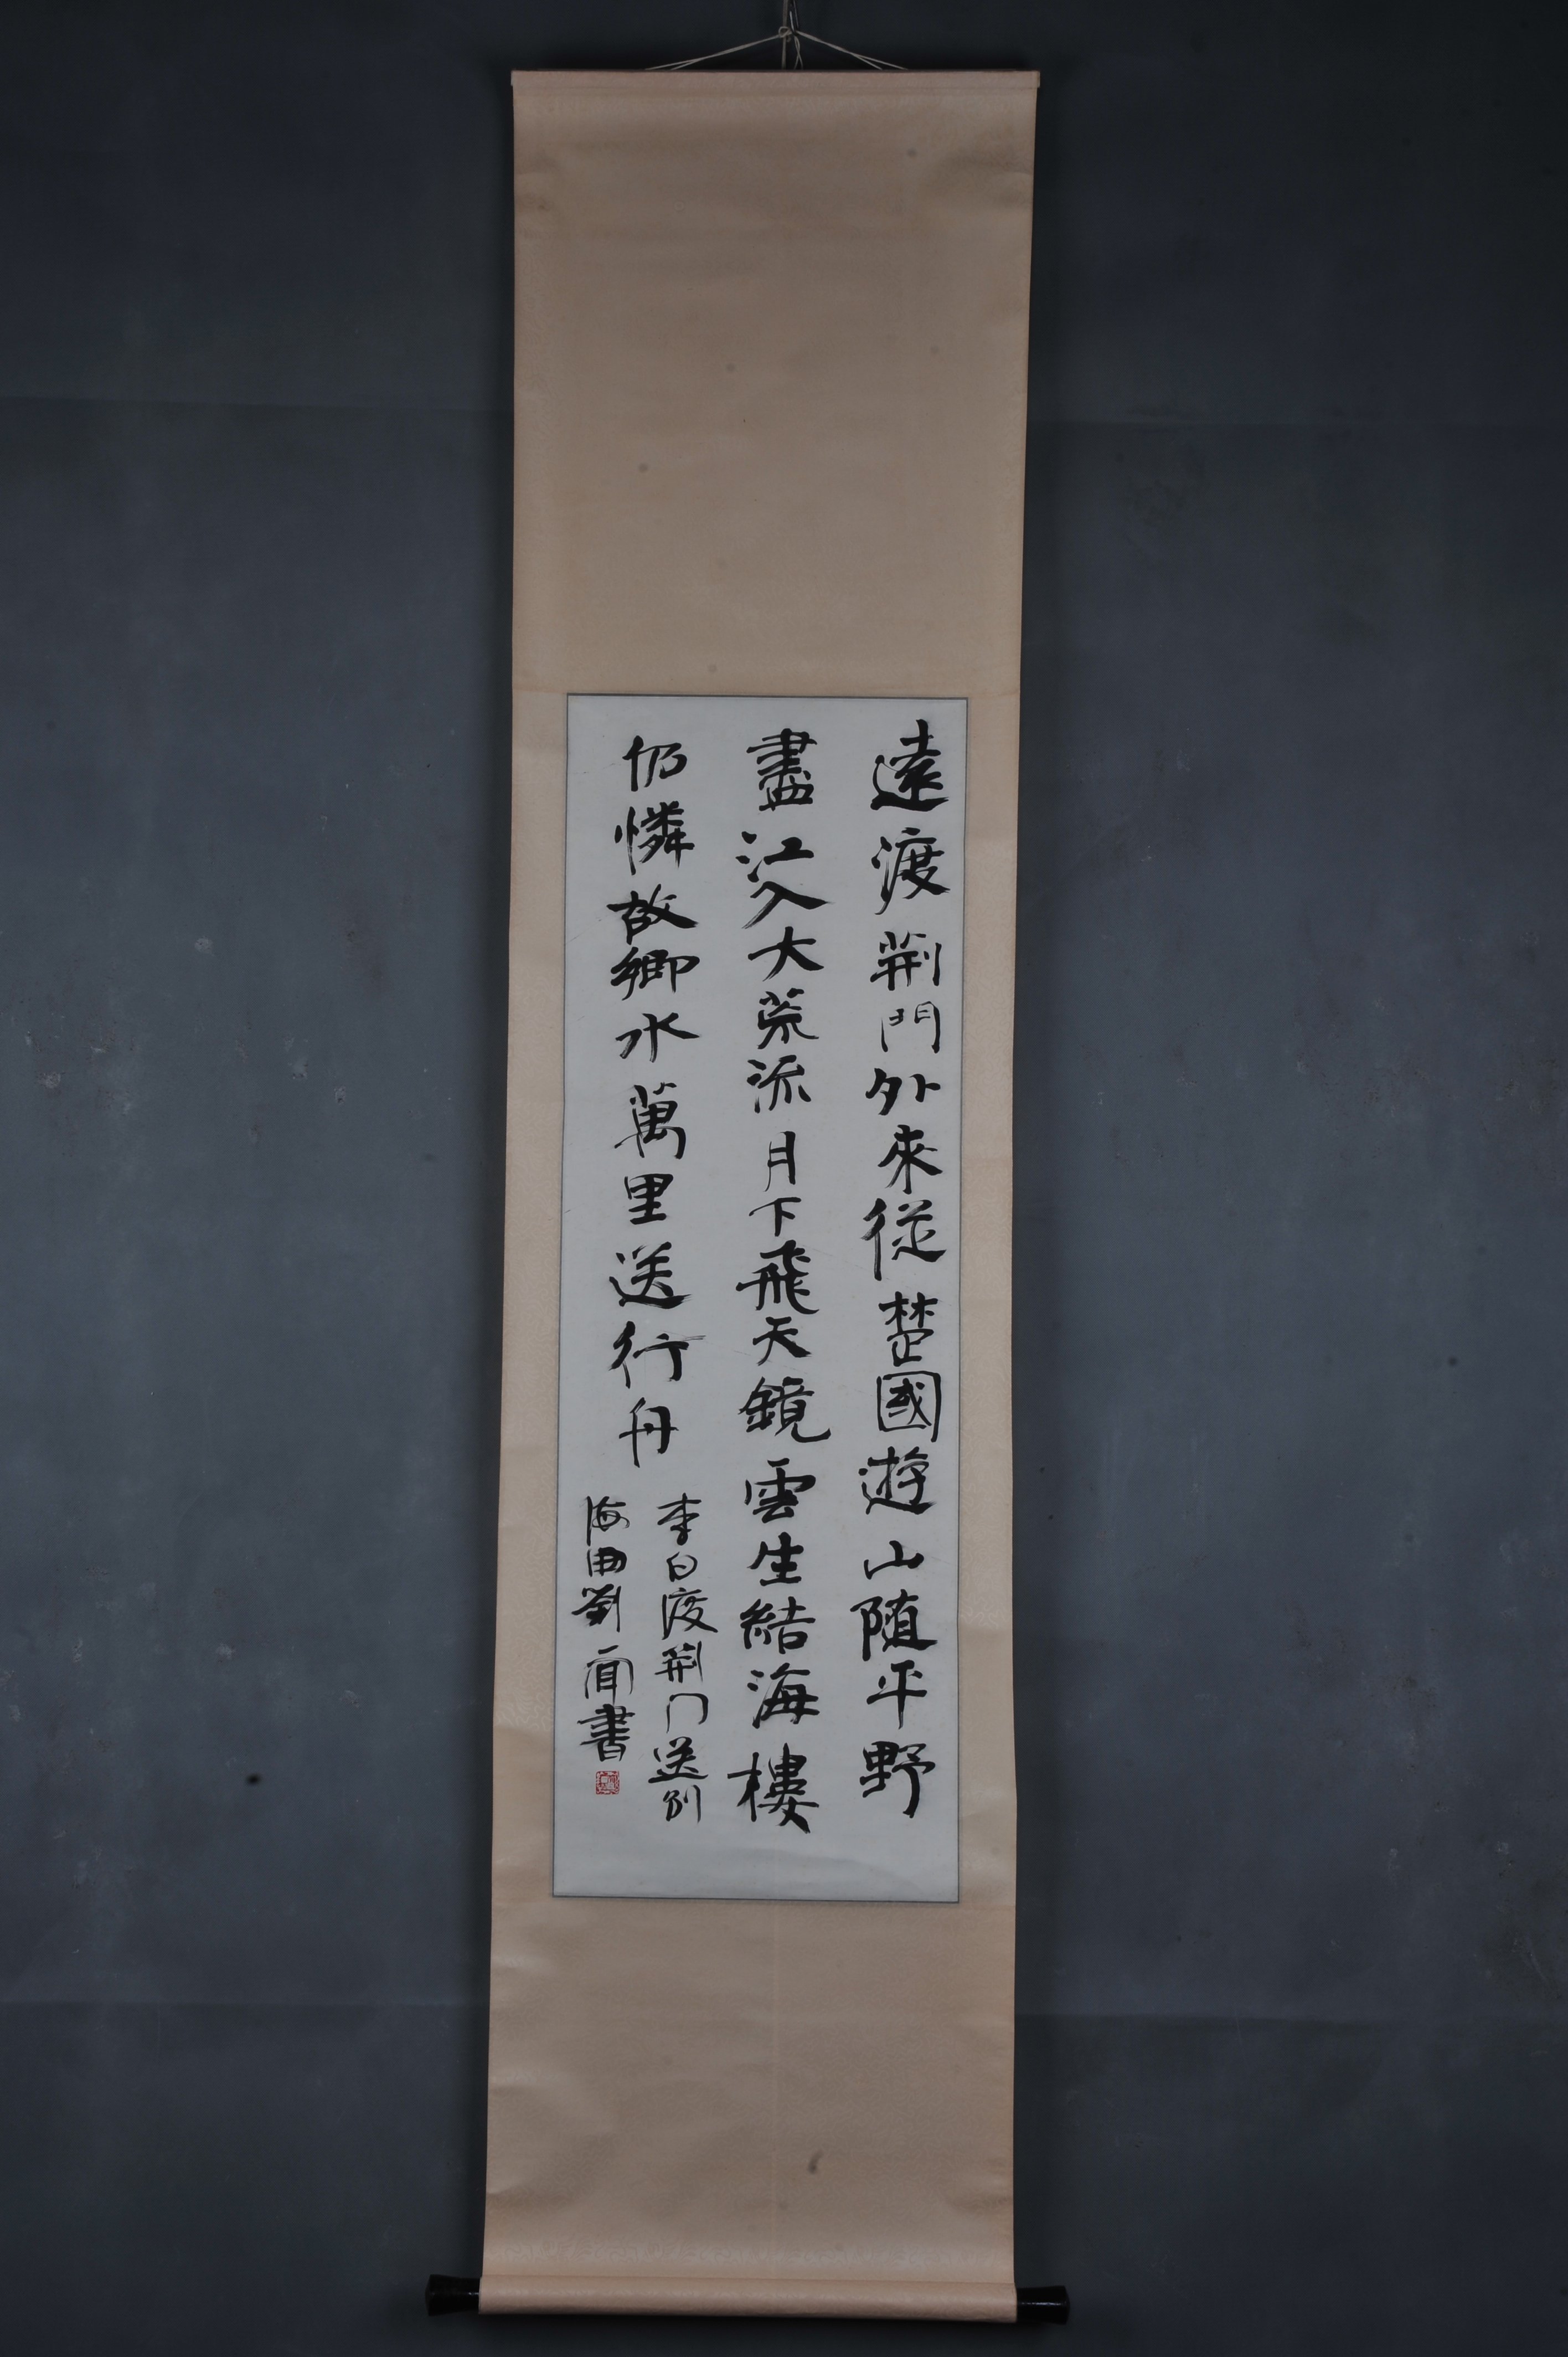 遠渡荊門外來從楚國遊山随平野
盡江入大荒流月下飛天鏡雲生結海樓
仍憐故鄉水萬里送行舟
李白渡荊门送别
海曲劉甯書